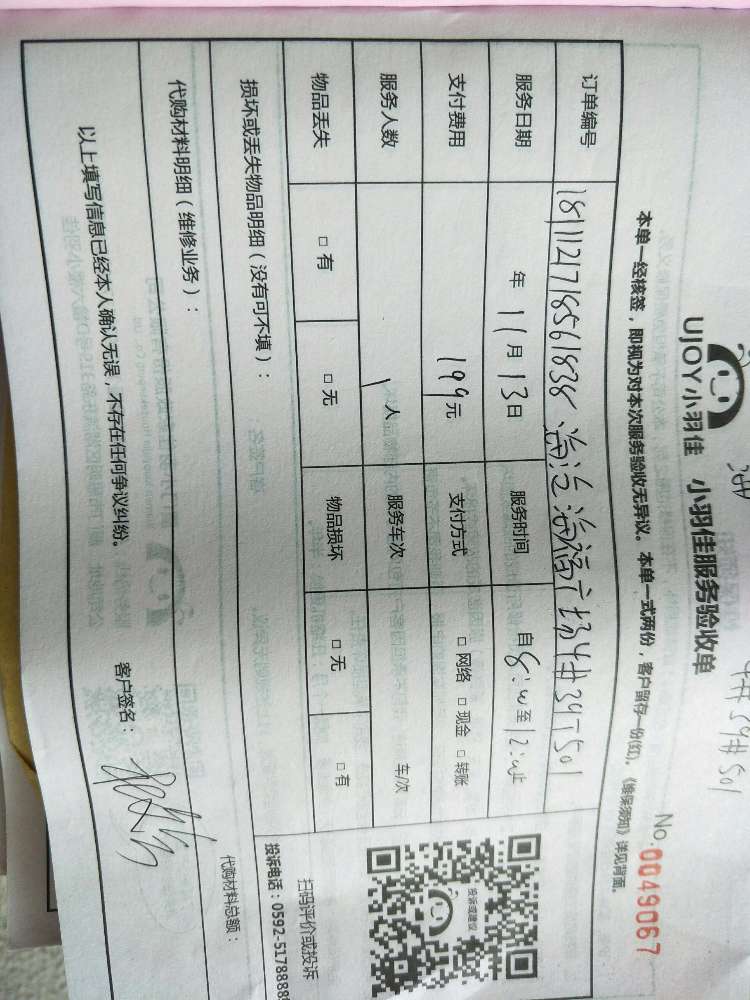 UJOY小羽佳 小羽佳服务验收单
No.0049067
本单一经核签，即视为对本次服务验收无异议。本单一式两份，客户留存一份(红)，《维保须知》详见背面。
订单编号 1811121718561838 海沧海福广场4#39T501
服务日期 年11月13日 服务时间 自8:00至12:00止
支付费用 199元 支付方式 □ 网络 □ 现金 □ 转账
服务人数 1人 服务车次 车/次
物品丢失 □ 有 □ 无 物品损坏 □ 无 □ 有
投诉或建议
扫码评价或投诉
投诉电话：0592-5178888
损坏或丢失物品明细（没有可不填）：
代购材料明细（维修业务）：
代购材料总额：
以上填写信息已经本人确认无误，不存在任何争议纠纷。 客户签名：